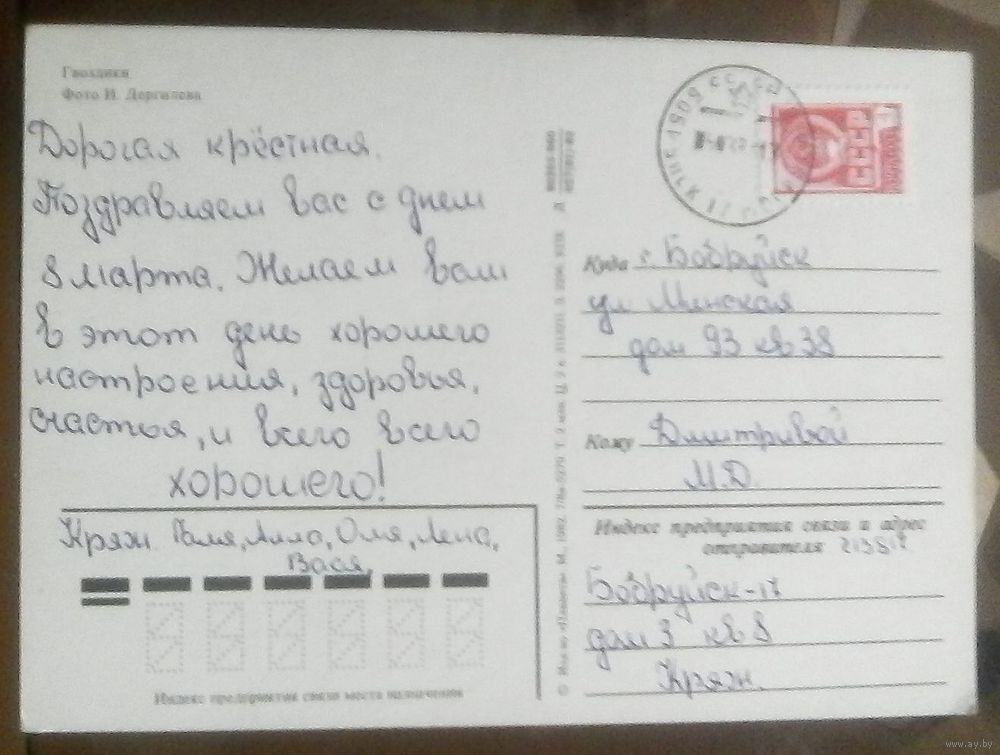 Гвоздики
Фото И. Дергилева
Дорогая крёстная.
Поздравляем вас с днем
8 марта. Желаем вам
в этот день хорошего
настроения, здоровья,
счастья, и всего всего
хорошего!
Кряж Галя, Алла, Оля, Лена,
Вася,
Индекс предприятия связи места назначения
СССР
Куда г. Бобруйск
ул Минская
дом 93 кв 38
Кому Дмитривой
М.Д.
Индекс предприятия связи и адрес
отправителя 213817
Бобруйск-17
дом 3 кв 8
Кряж.
www.ay.by